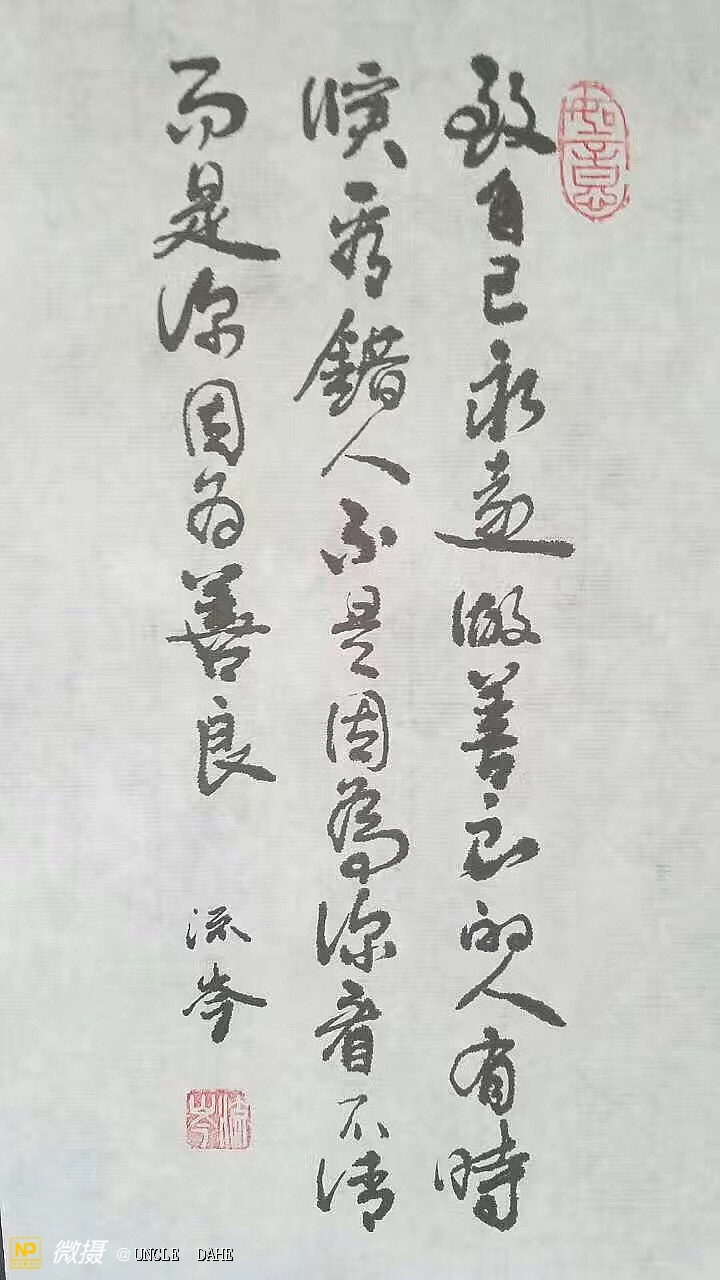 致自己永遠做善良的人有時
候看錯人不是因為你看不清
而是你因为善良
流岑
如意
流岑
NP 微摄 @UNCLE DAHE